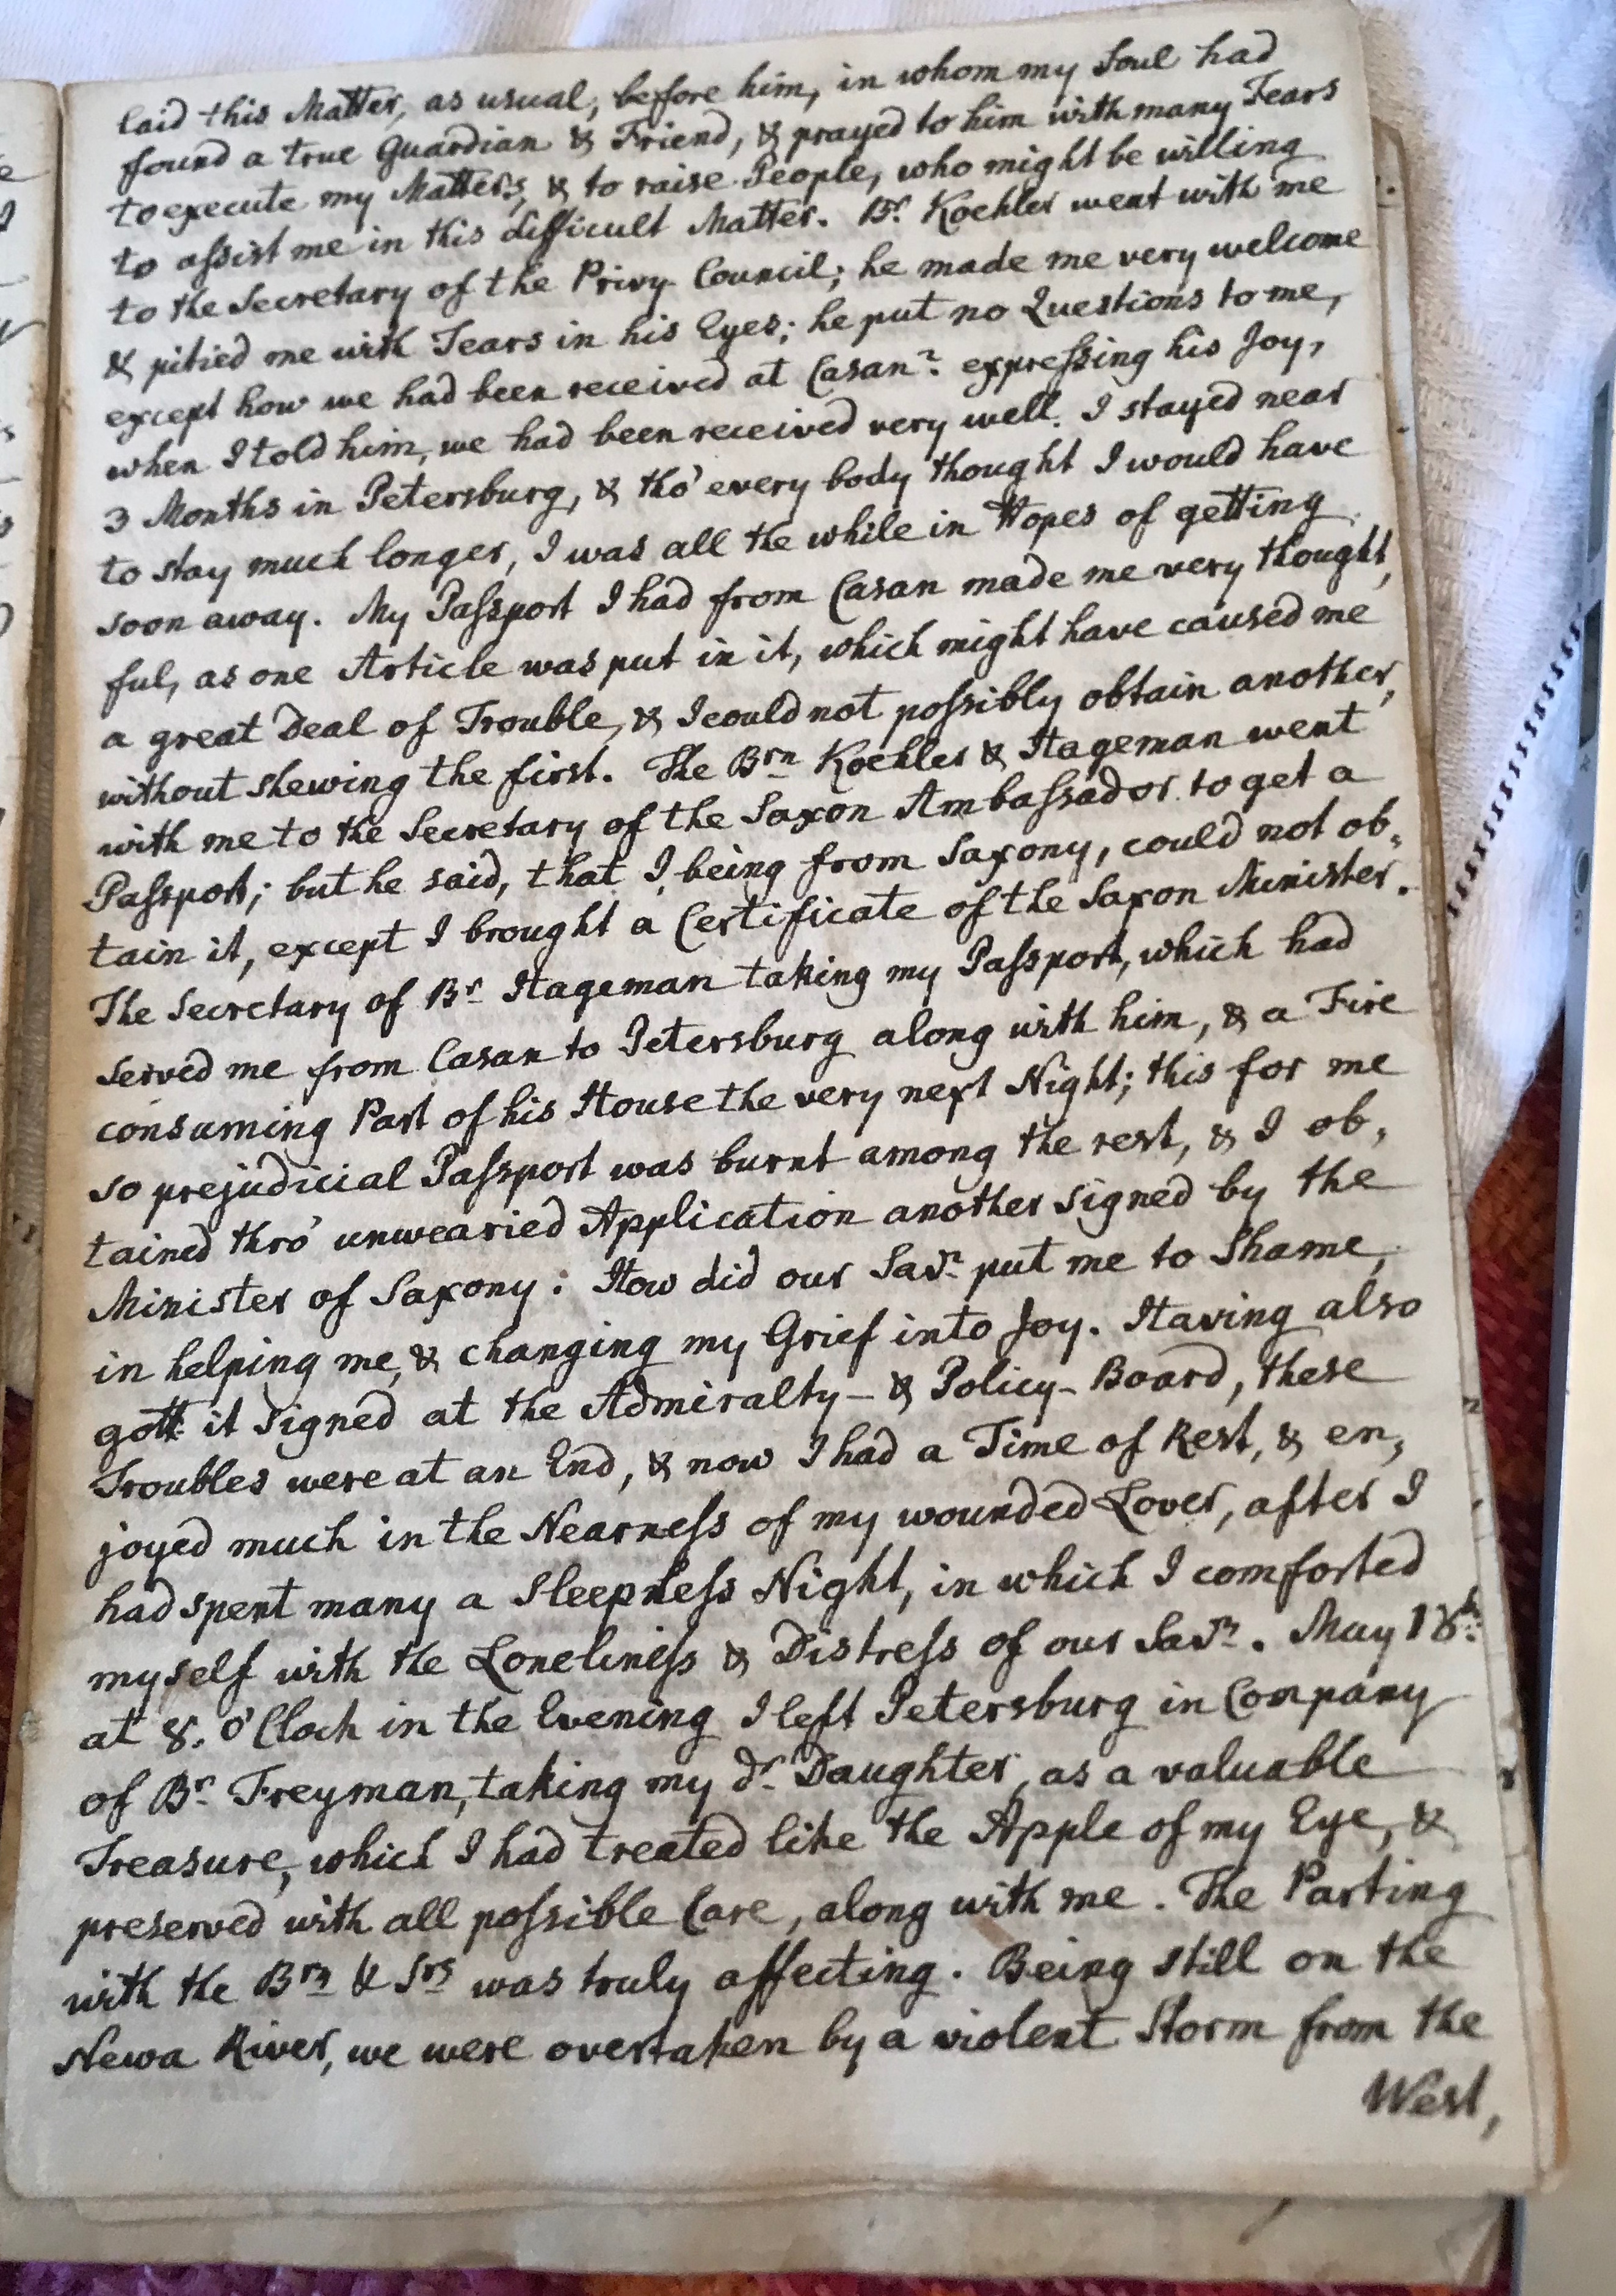 laid this Matter, as usual, before him, in whom my Soul had
found a true Guardian & Friend, & prayed to him with many Tears
to execute my Matters, & to raise People, who might be willing
to assist me in this difficult Matter. Br. Koehler went with me
to the Secretary of the Privy Council; he made me very welcome
& pitied me with Tears in his Eyes; he put no Questions to me,
except how we had been received at Casan? expressing his Joy,
when I told him, we had been received very well. I stayed near
3 Months in Petersburg, & tho' every body thought I would have
to stay much longer, I was all the while in Hopes of getting
soon away. My Passport I had from Casan made me very thought,
ful, as one Article was put in it, which might have caused me
a great Deal of Trouble, & I could not possibly obtain another,
without shewing the first. The Brn Koehler & Hageman went
with me to the Secretary of the Saxon Ambassador to get a
Passport; but he said, that I, being from Saxony, could not ob,
tain it, except I brought a Certificate of the Saxon Minister.
The Secretary of Br Hageman taking my Passport, which had
served me from Casan to Petersburg along with him, & a Fire
consuming Part of his House the very next Night; this for me
so prejudicial Passport was burnt among the rest, & I ob,
tained thro' unwearied Application another signed by the
Minister of Saxony: How did our Savr put me to Shame,
in helping me, & changing my Grief into Joy. Having also
gott it signed at the Admiralty- & Policy-Board, these
Troubles were at an End, & now I had a Time of Rest, & en,
joyed much in the Nearness of my wounded Lover, after I
had spent many a Sleepless Night, in which I comforted
myself with the Loneliness & Distress of our Savr. May 18th
at 8. o'Clock in the Evening I left Petersburg in Company
of Br Freyman, taking my dr Daughter, as a valuable
Treasure, which I had treated like the Apple of my Eye, &
preserved with all possible Care, along with me. The Parting
with the Brn & Srs was truly affecting. Being still on the
Newa River, we were overtaken by a violent Storm from the
West,